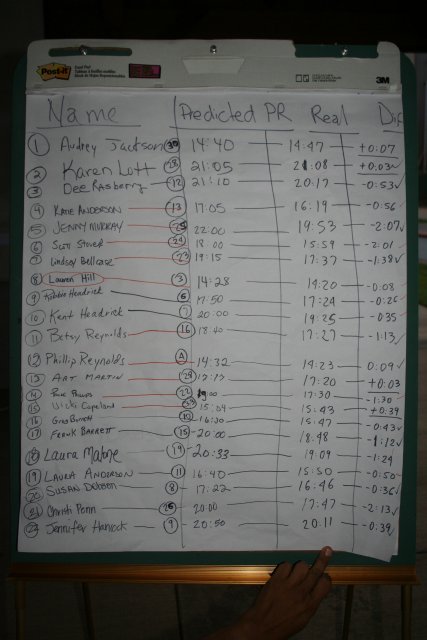 Post-it
3M
Name Predicted PR Real
1 Audrey Jackson 30 14:40 14:47 +0:07
2 Karen Lott 28 21:05 21:08 +0:03
3 Dee Rasberry 12 21:10 20:17 -0:53
4 Katie Anderson 13 17:05 16:19 -0:56
5 Jenny Murray 22:00 19:53 -2:07
6 Scott Stover 18:00 15:59 -2:01
7 Lindsey Bellcase 23 19:15 17:37 -1:38
8 Lauren Hill 3 14:28 14:20 -0:08
9 Hendrick 6 17:50 17:24 -0:26
10 Kent Hendrick 7 20:00 19:25 -035
11 Betsy Reynolds 16 18:40 17:27 -1:13
12 Phillip Reynolds 14:32 14:23 0:09
13 Art Martin 17:20 +0:03
14 17:30 -1:30
15 Vicki Copeland 15:04 15:43 +0:39
16 Greg 16:30 15:47 -0:43
17 Frank Barrett 15 20:00 18:48 -1:12
18 Laura Malone 19 20:33 19:09 -1:24
19 Laura Anderson 11 16:40 15:50 -0:50
20 Susan Dobson 8 17:22 16:46 -0:36
21 Christi Penn 26 20:00 17:47 -2:13
22 Jennifer Hancock 9 20:50 20:11 -0:39